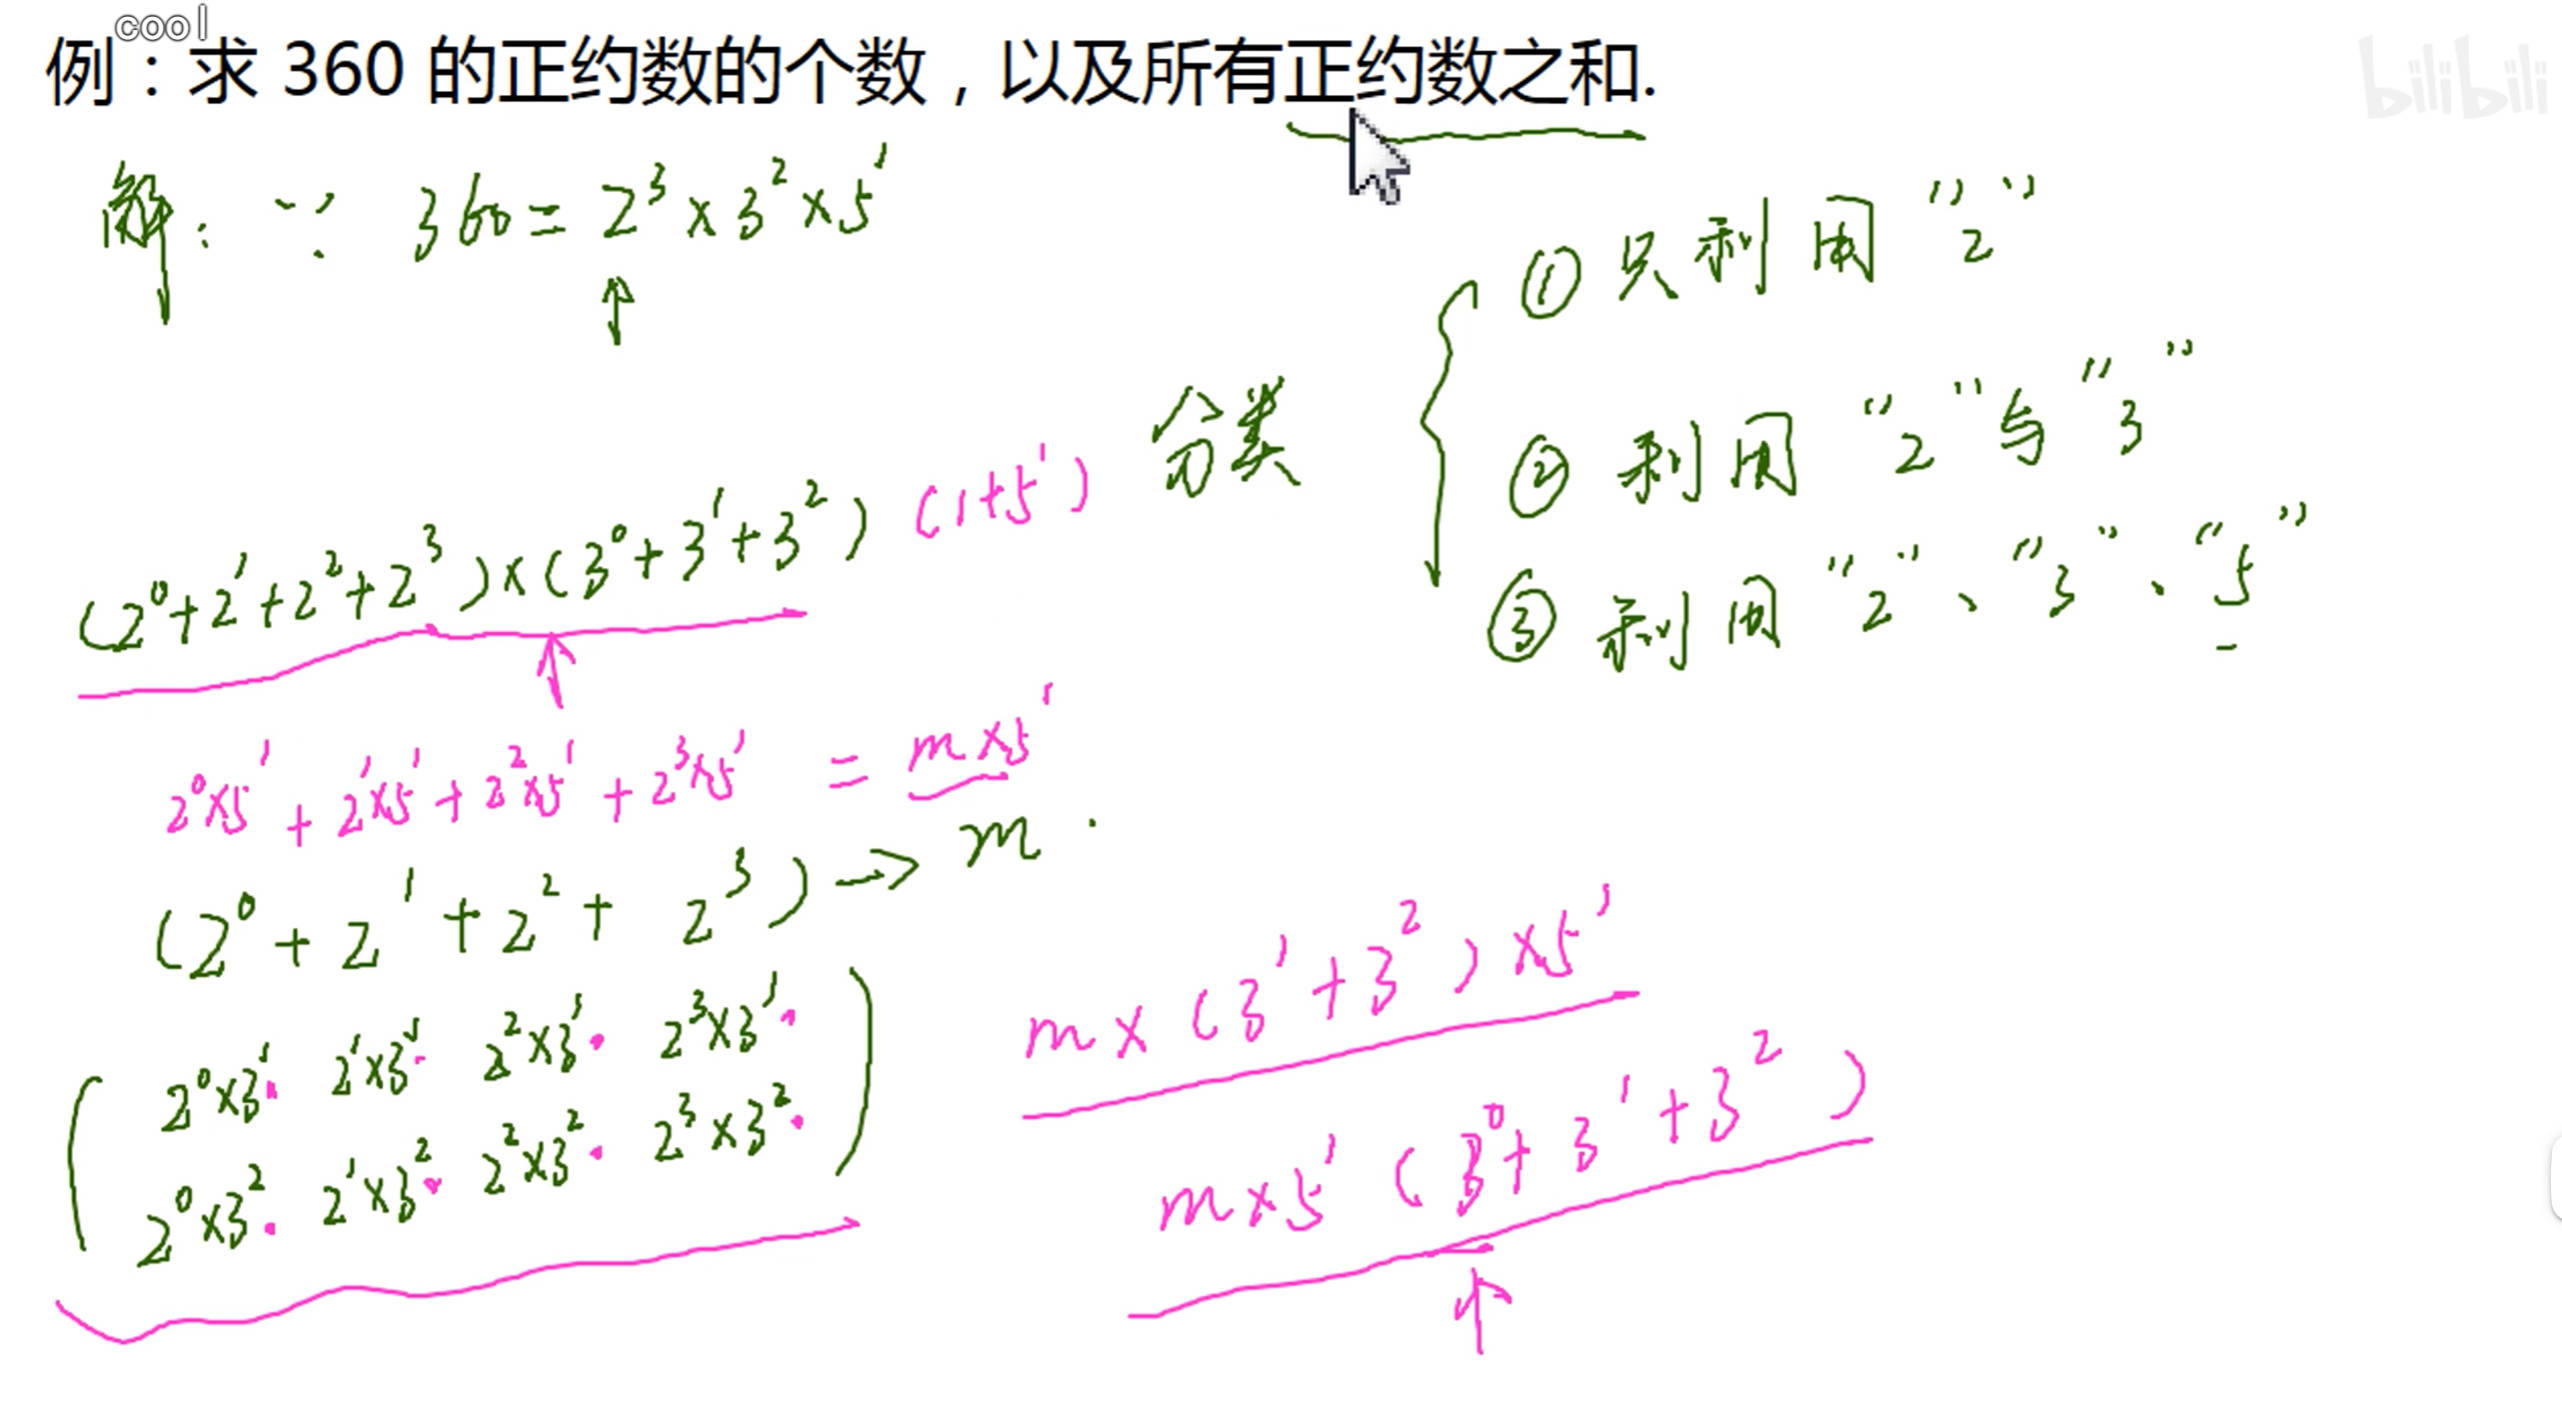 cool
例：求 360 的正约数的个数，以及所有正约数之和.
bilibili
解：∵ 360=2³×3²×5¹
分类
① 只利用“2”
② 利用“2”与“3”
③ 利用“2”、“3”、“5”
(2⁰+2¹+2²+2³)×(3⁰+3¹+3²)(1+5¹)
2⁰×5¹+2¹×5¹+2²×5¹+2³×5¹=m×5¹
(2⁰+2¹+2²+2³)→m.
2⁰×3¹· 2¹×3¹· 2²×3¹· 2³×3¹·
2⁰×3²· 2¹×3²· 2²×3²· 2³×3²·
m×(3¹+3²)×5¹
m×5¹(3⁰+3¹+3²)